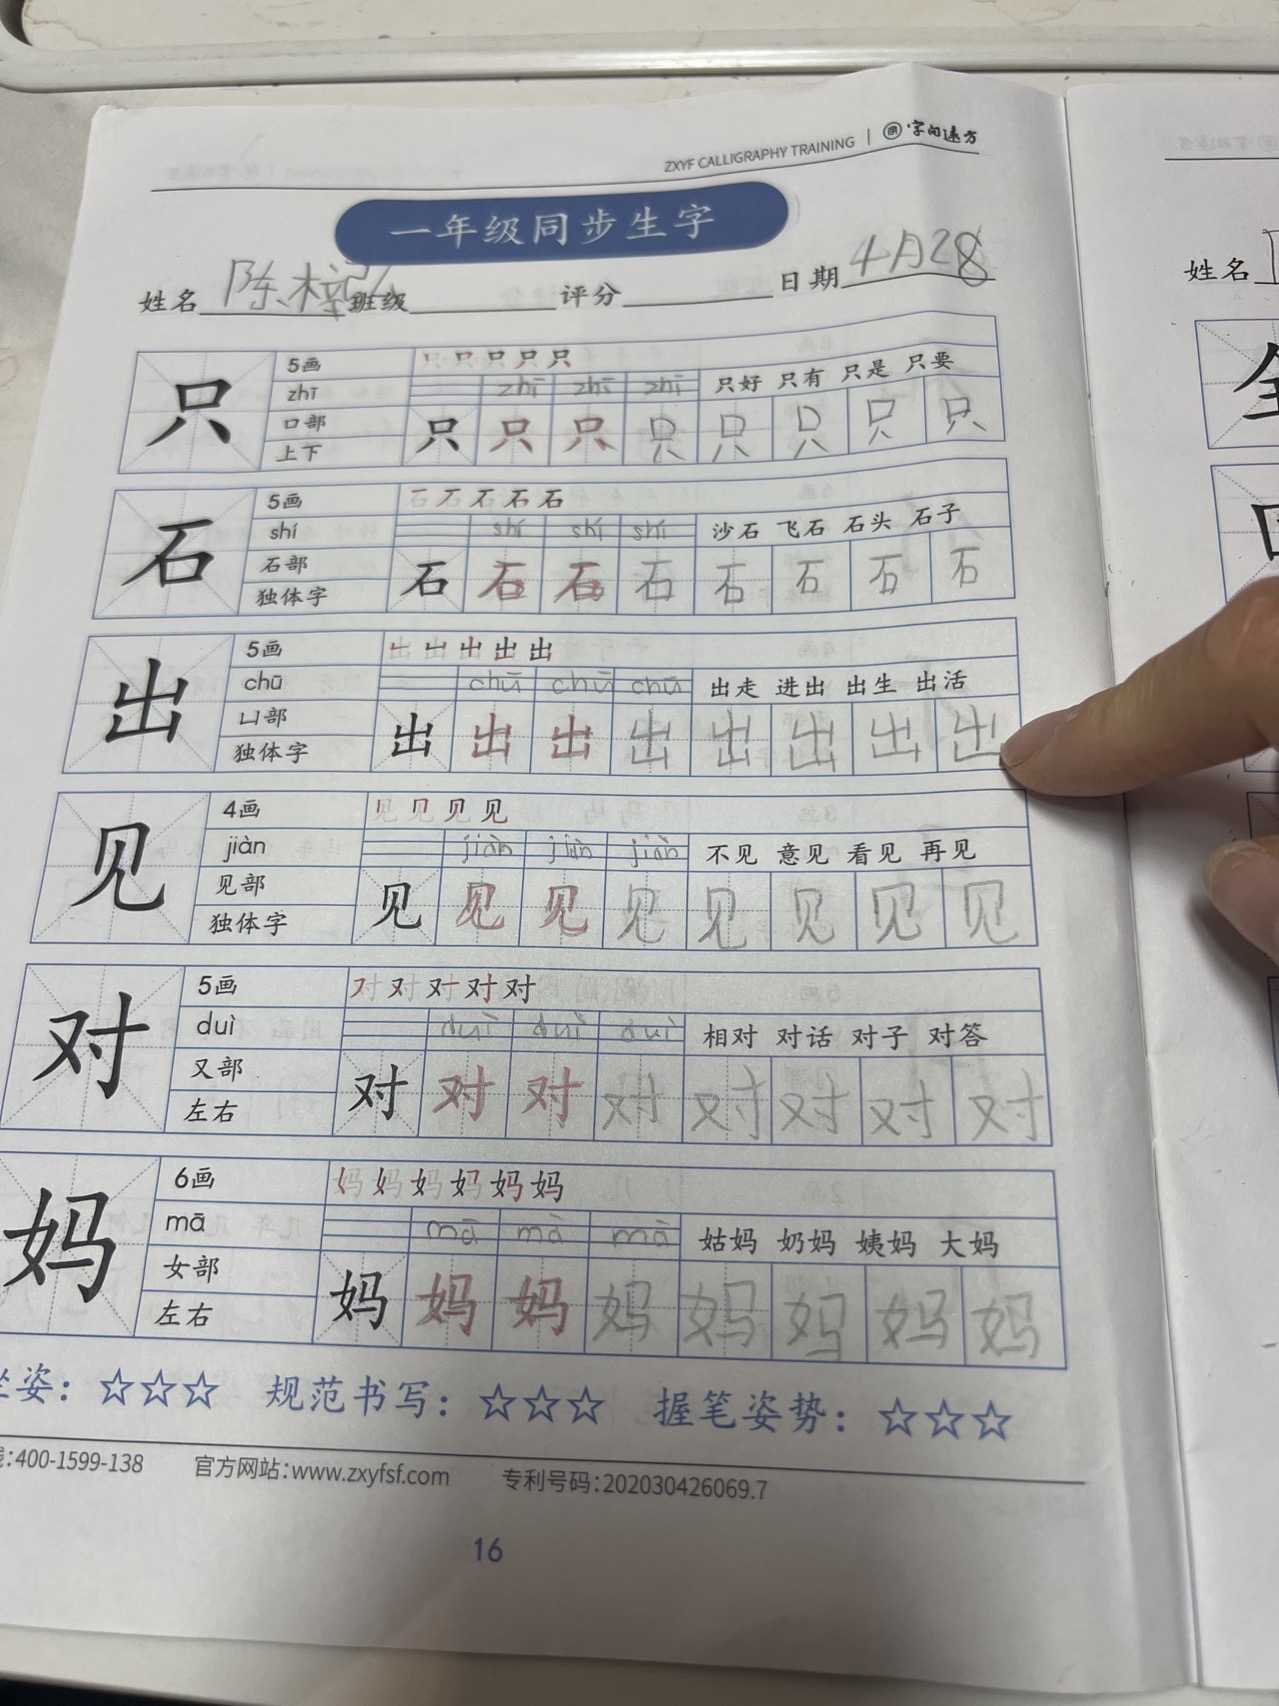 ZXYF CALLIGRAPHY TRAINING | 字向远方
一年级同步生字
姓名 陈梓 班级 评分 日期 4月28
只 5画 只 只 只 只 只
zhī zhī zhī zhī 只好 只有 只是 只要
口部 只 只 只 只 只 只 只 只
上下
石 5画 石 石 石 石 石
shí shí shí shí 沙石 飞石 石头 石子
石部 石 石 石 石 石 石 石 石
独体字
出 5画 出 出 出 出 出
chū chū chū chū 出走 进出 出生 出活
凵部 出 出 出 出 出 出 出 出
独体字
见 4画 见 见 见 见
jiàn jiàn jiàn jiàn 不见 意见 看见 再见
见部 见 见 见 见 见 见 见 见
独体字
对 5画 对 对 对 对 对
duì duì duì duì 相对 对话 对子 对答
又部 对 对 对 对 对 对 对 对
左右
妈 6画 妈 妈 妈 妈 妈 妈
mā mā mā mā 姑妈 奶妈 姨妈 大妈
女部 妈 妈 妈 妈 妈 妈 妈 妈
左右
坐姿：☆☆☆ 规范书写：☆☆☆ 握笔姿势：☆☆☆
:400-1599-138 官方网站:www.zxyfsf.com 专利号码:202030426069.7
16
姓名